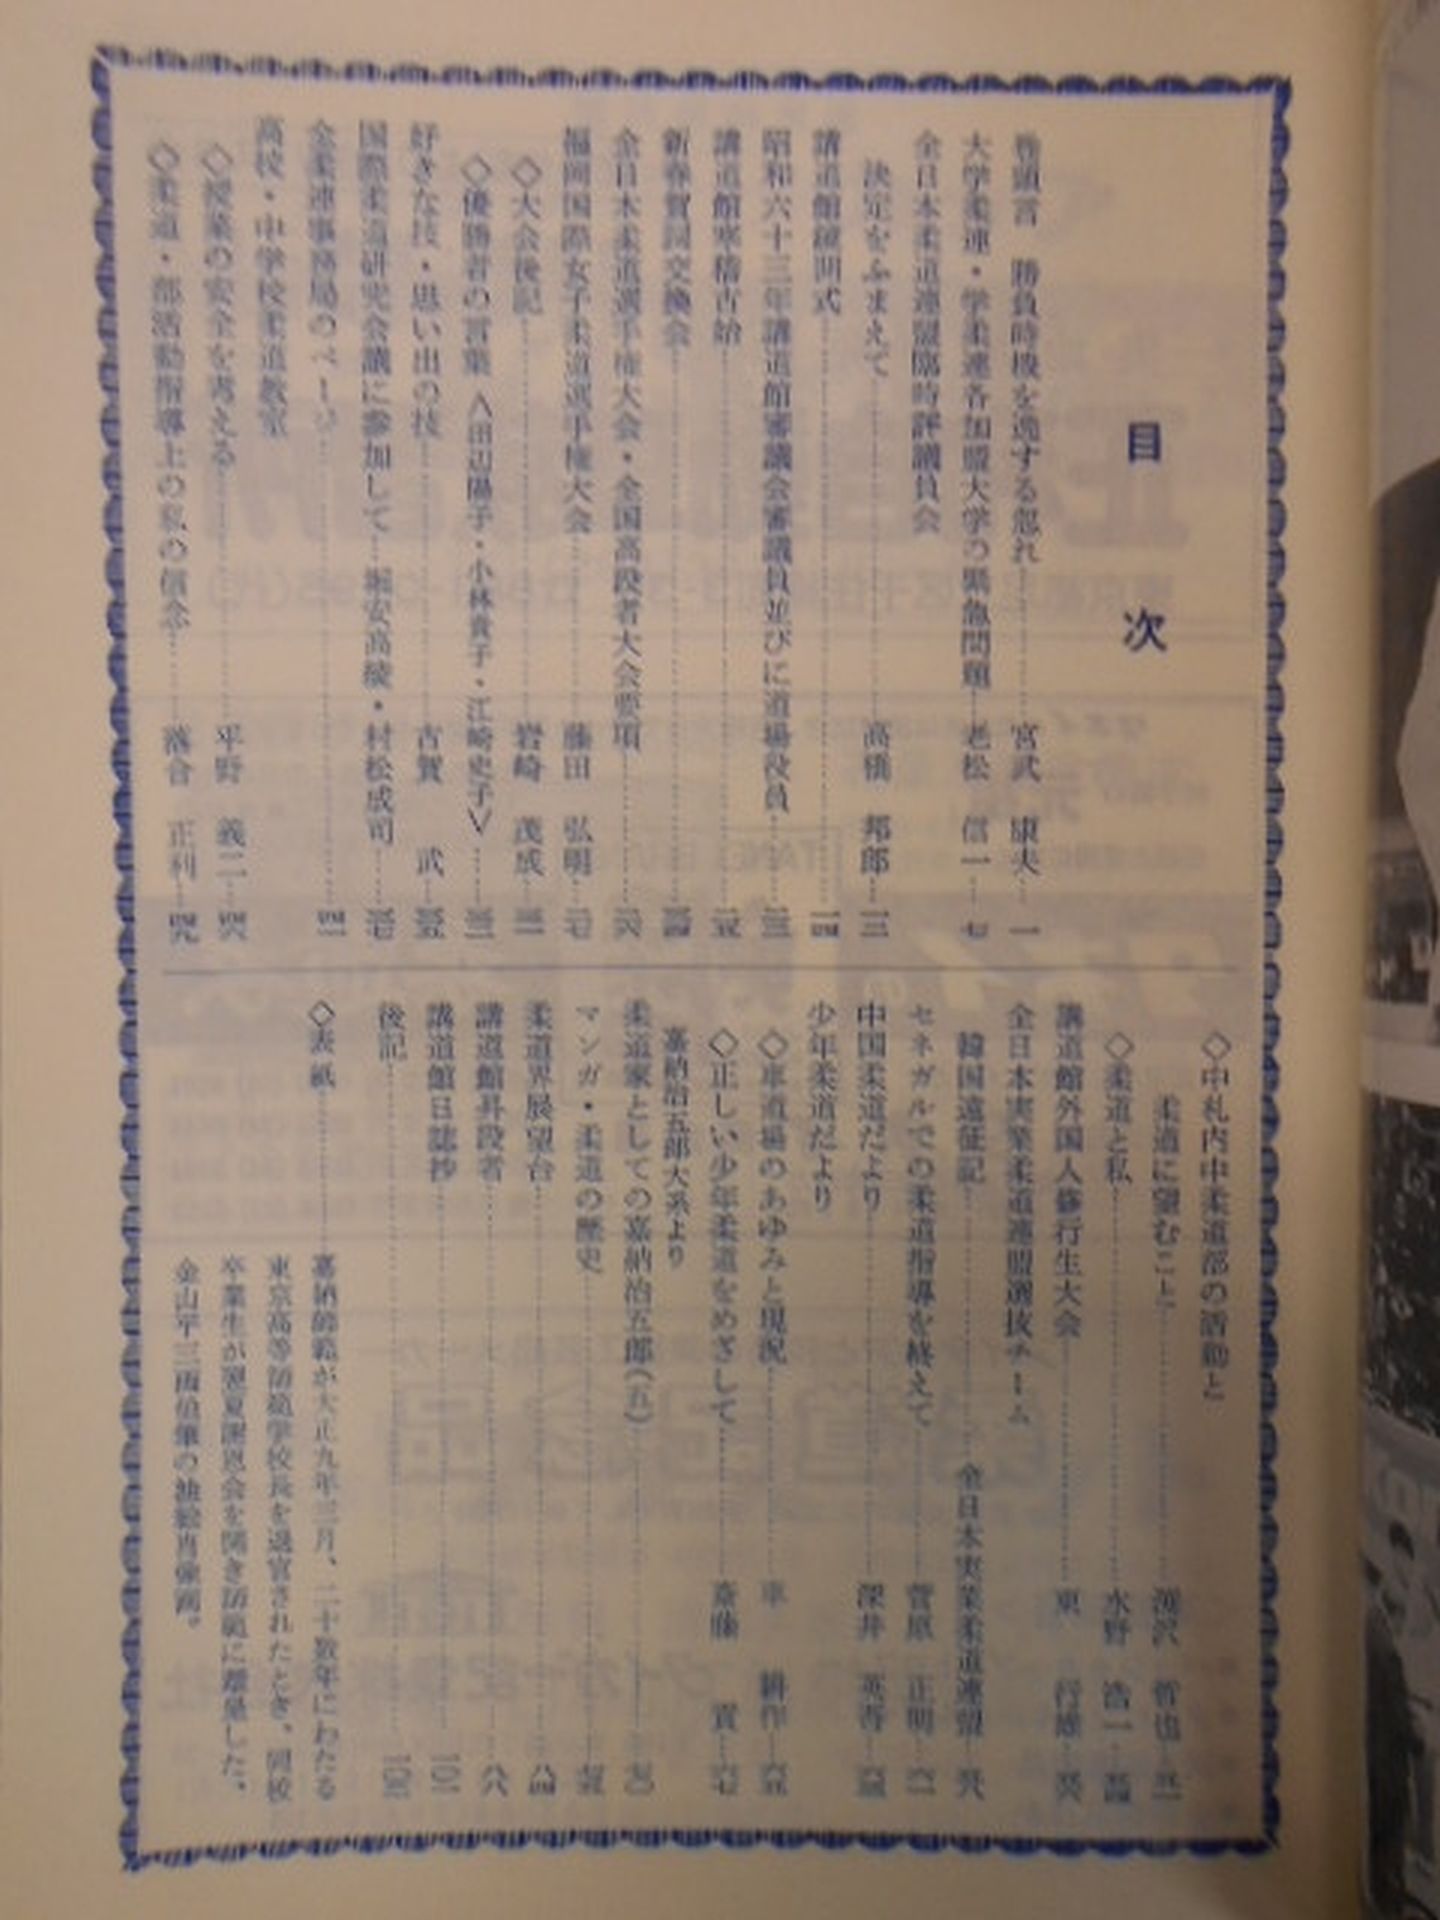 目次
巻頭言　勝負時機を逸する恐れ……宮武　康夫…一
大学柔連・学柔連各加盟大学の緊急問題…老松　信一…七
全日本柔道連盟臨時評議員会
決定をふまえて……高橋　邦郎…一二
講道館鏡開式……一四
昭和六十三年講道館審議会審議員並びに道場役員……二三
講道館寒稽古始……二五
新春賀詞交換会……
全日本柔道選手権大会・全国高段者大会要項……二六
福岡国際女子柔道選手権大会……藤田　弘明…二七
◇大会後記……岩崎　茂成…三一
◇優勝者の言葉＜田辺陽子・小林貴子・江崎史子＞……三三
好きな技・思い出の技……古賀　武…三五
国際柔道研究会議に参加して…　安高　・村松成司…三七
全柔連事務局のページ……四一
高校・中学校柔道教室
◇授業の安全を考える……平野　義二…四六
◇柔道・部活動指導上の私の信念……落合　正利…四九
◇中札内中柔道部の活動と
柔道に望むこと……　哲也…五一
◇柔道と私……水野　浩一…五四
講道館外国人修行生大会……東　行雄…五六
全日本実業柔道連盟選抜チーム
韓国遠征記……全日本実業柔道連盟…五八
セネガルでの柔道指導を終えて……菅原　正明…六一
中国柔道だより……深井　英吾…六三
少年柔道だより
◇車道場のあゆみと現況……車　耕作…六五
◇正しい少年柔道をめざして……斎藤　…六七
嘉納治五郎大系より
柔道家としての嘉納治五郎（五）……七〇
マンガ・柔道の歴史……七五
柔道界展望台……八四
講道館昇段者……八六
講道館日誌抄……一〇一
後記……
◇表紙……嘉納師範が大正九年三月、二十数年にわたる
東京高等師範学校長を退官されたとき、同校
卒業生が翌夏謝恩会を開き師範に贈呈した、
金山平三画伯筆の油絵肖像画。